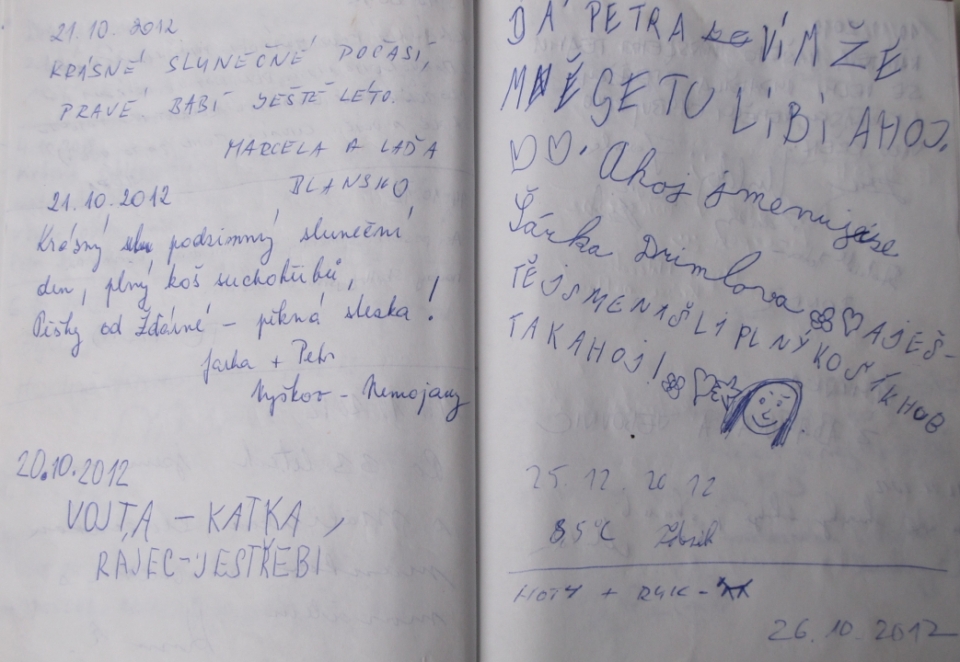 21.10.2012
KRÁSNÉ SLUNEČNÉ POČASÍ,
PRAVÉ BABÍ JEŠTĚ LÉTO.
MARCELA A LAĎA
BLANSKO
21.10.2012
Krásný podzimný sluneční
den, plný koš suchohřibů,
Pěšky od Žďárné – pěkná sleaka!
Jarka + Petr
Vyškov – Nemojany
20.10.2012
VOJTA – KATKA,
RÁJEC-JESTŘEBÍ
DÁ PETRA VÍM ŽE
MĚ GE TU LÍBÍ AHOJ.
Ahoj jmenuji se
Šárka Drimlova AJEŠ-
TĚJSMENIŠLIPLNÝKOŠÍKHUB
TAKAHOJ!
25.12.2012
8,5°C
HOTY + RYIK –
26.10.2012